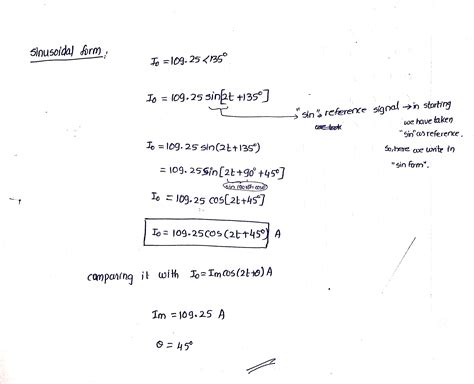 sinusoidal form:
I₀ = 109.25 <135°
I₀ = 109.25 sin[2t +135°]
"sin" → reference signal → in starting
we have taken
"sin" as reference.
So, here we write in
"sin form".
I₀ = 109.25 sin(2t+135°)
= 109.25 sin[2t+90°+45°]
I₀ = 109.25 cos[2t+45°]
I₀ = 109.25 cos(2t+45°) A
comparing it with I₀ = Im cos(2t+θ) A
Im = 109.25 A
θ = 45°